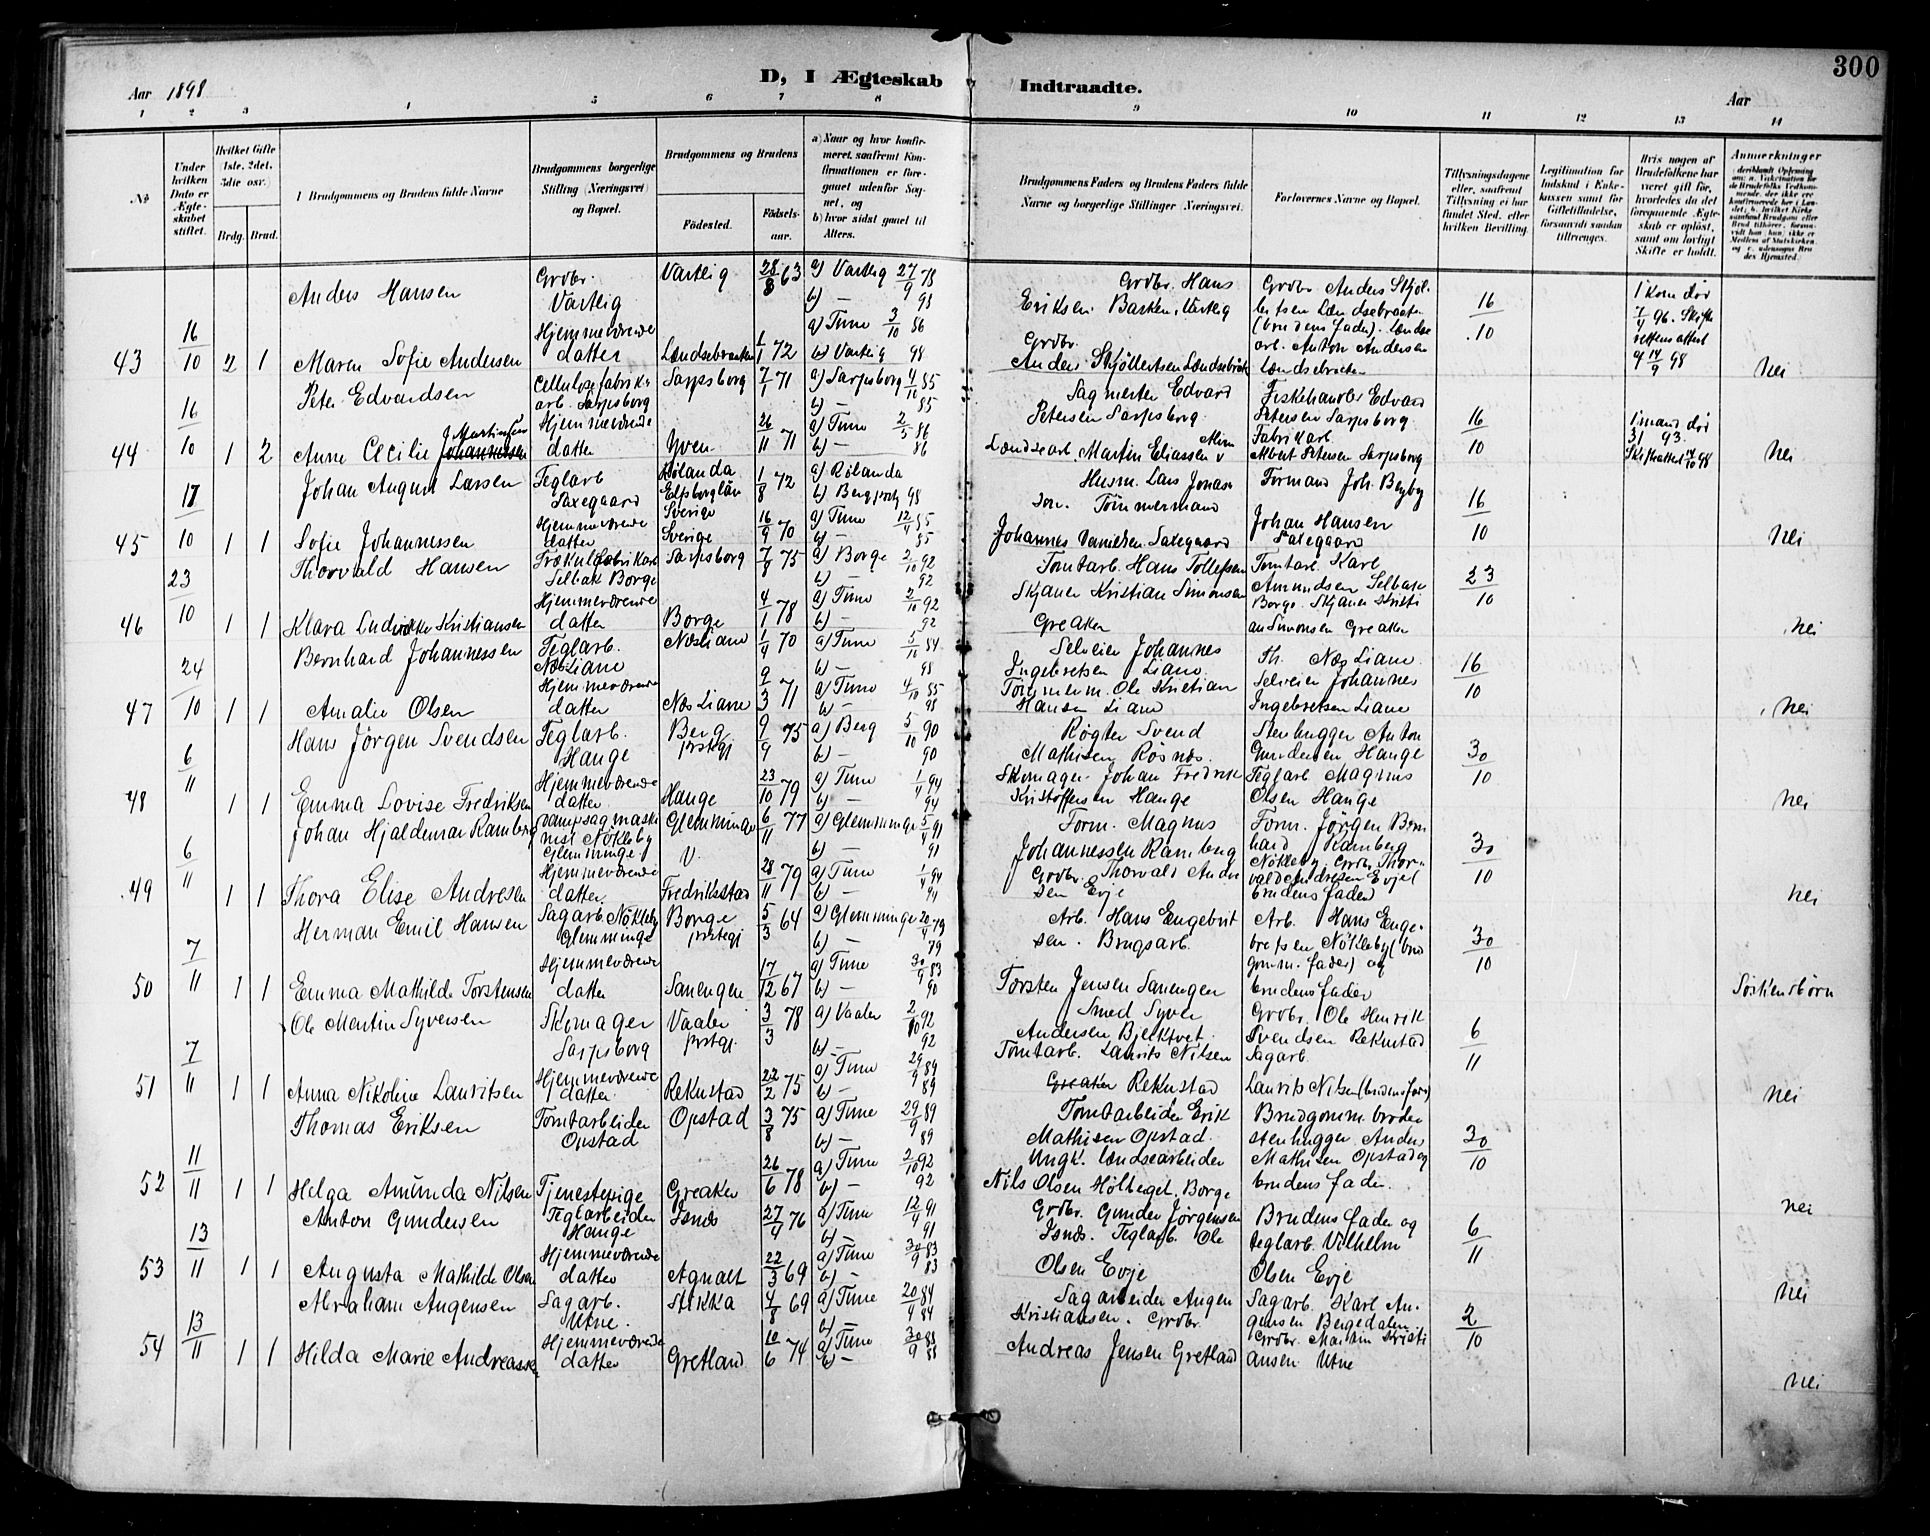 300
D, I Ægteskab Indtraadte.
Aar 1898
Aar
1 2 3 4 5 6 7 8 9 10 11 12 13 14
No
Under hvilken Dato er Ægteskabet stiftet.
Hvilket Gifte (1ste, 2det, 3die osv.)
Brdg. Brud.
Brudgommens og Brudens fulde Navne
Brudgommens borgerlige Stilling (Næringsvei) og Bopæl.
Brudgommens og Brudens
Fødested.
Fødsels-aar.
a) Naar og hvor konfirmeret, saafremt Konfirmationen er foregaaet udenfor Sognet, og
b) hvor sidst gaaet til Alters.
Brudgommens Faders og Brudens Faders fulde Navne og borgerlige Stillinger (Næringsvei).
Forlovernes Navne og Bopæl.
Tillysningsdagene eller, saafremt Tillysning ei har fundet Sted, efter hvilken Bevilling.
Legitimation for Indskud i Enkekassen samt for Giftetilladelse, forsaavidt saadan tiltrænges.
Hvis nogen af Brudefolkene har været gift før, hvorledes da det foregaaende Ægteskab er opløst, samt om lovligt Skifte er holdt.
Anmærkninger
Anders Hansen Grdbr. Vartlig Vartlig 28/8 63 a) Vartlig 27/9 78 b) — 98 Grdbr. Hans Eriksen Bakken, Vartlig
43 16/10 2 1 Maren Sofie Andersen Hjemmeværende datter Lændsebraaten 1/1 72 a) Tune 3/10 86 b) Vartlig 98 Grdbr. Anders Skjöllertsen Lændsebråten
Grdbr Anders Skjöllertsen Lændsebraaten (brudens fader). Lændsearb. Anton Andersen Lændsebraaten 16/10 1 kone død 7/4 96. Skifterettens attest 14/9 98 nei
Peter Edvardsen Cellulosefabrikarb. Sarpsborg Sarpsborg 7/1 71 a) Sarpsborg 4/10 85 b) — 85 Sagmester Edvard Petersen Sarpsborg
44 16/10 1 2 Anne Cecilie Johannessen Martinsen Hjemmeværende datter Yven 26/11 71 a) Tune 2/5 86 b) — 86 Lændsearb. Martin Eliassen
Fiskehandler Edvard Petersen Sarpsborg Fabrikarb. Albert Petersen Sarpsborg 16/10 1 mand død 31 93. Skifteattest 14/10 98 nei
Johan August Larsen Teglarb Saxegaard Rölanda Elfsborglän Sverige 1/8 72 a) Rölanda b) Berg prstg 98 Husm. Lars Jonassen. Tömmermand
45 17/10 1 1 Sofie Johannessen Hjemmeværende datter Sverige 16/9 70 a) Tune 12/4 85 b) — 85 Johannes Danielsen Saxegaard
Formand Joh. Begby Johan Hansen Saxegaard 16/10 nei
Thorvald Hansen Trækulfabrikarb Selbak Borge Sarpsborg 7/8 75 a) Borge 2/10 92 b) — 92 Tomtarb. Hans Tollefsen
46 23/10 1 1 Klara Ludvikke Kristiansen Hjemmeværende datter Borge 4/1 78 a) Tune 2/10 92 b) — 92 Skjöner Kristian Simonsen Greaker
Tomtarb. Karl Amundsen Selbak Borge. Skjöner Kristian Simonsen Greaker 23/10 nei
Bernhard Johannessen Teglarb. Næs Liane Næsliane 1/4 70 a) Tune 5/10 84 b) — 98 Selveier Johannes Ingebretsen Liane
47 24/10 1 1 Amalie Olsen Hjemmeværende datter Næs Liane 9/3 71 a) Tune 4/10 85 b) — 98 Tömmerm. Ole Kristian Hansen Liane
Th. Næs Liane. Selveier Johannes Ingebretsen Liane 16/10 nei
Hans Jörgen Svendsen Teglarb. Hauge Berg prstgj 9/9 75 a) Berg 5/10 90 b) — 90 Rögter Svend Mathisen Rösnæs.
48 6/11 1 1 Emma Lovise Fredriksen Hjemmeværende datter Hauge 23/10 79 a) Tune 1/4 94 b) — 94 Skomager Johan Fredrik Kristoffersen Hauge
Stenhugger Anton Gundersen Hauge Teglarb Magnus Olsen Hauge 30/10 nei
Johan Hjaldemar Ramberg Dampsagmaskinist Nökleby Glemminge Glemminge 6/11 77 a) Glemminge 5/4 91 b) — 91 Form. Magnus Johannessen Ramberg
49 6/11 1 1 Thora Elise Andresen Hjemmeværende datter Fredriksstad 28/11 79 a) Tune 1/4 94 b) — 94 Grdbr. Thorvald Andresen Evje
Form. Jörgen Bernhard Ramberg Nökleby. Grdbr. Thorvald Andresen Evje brudens fader 30/10 nei
Herman Emil Hansen Sagarb. Nökleby Glemminge Borge prstegj 5/3 64 a) Glemminge 20/4 79 b) — 79 Arb. Hans Engebretsen. Brugsarb.
50 7/11 1 1 Emma Mathilde Torstensen Hjemmeværende datter Sanengen 17/12 67 a) Tune 30/9 83 b) — 90 Torsten Jensen Sanengen
Arb. Hans Engebretsen Nökleby (brudgomm. fader) og brudens fader 30/10 Söskensbörn
Ole Martin Syversen Skomager Sarpsborg Vaaler prstgj. 3/3 78 a) Vaaler 2/10 92 b) — 92 Smed Syver Andersen Bjelktvet.
51 7/11 1 1 Anna Nikoline Lauritsen Hjemmeværende datter Rekustad 22/2 75 a) Tune 29/9 89 b) — 89 Tomtarb. Laurits Nilsen Greaker Rekustad
Grdbr. Ole Henrik Svendsen Rekustad Sagarb. Laurits Nilsen (brudens fader) 6/11 nei
Thomas Eriksen Tomtarbeider Opstad Opstad 3/8 75 a) Tune 29/9 89 b) — 89 Tomtarbeider Erik Mathisen Opstad.
52 11/11 1 1 Helga Amunda Nilsen Tjenestepige Greaker 26/6 78 a) Tune 2/10 92 b) — 92 Ungk. lændsearbeider Nils Olsen Hölberget, Borge
Brudgomm. broder stenhugger Anders Mathisen Opstad og brudens fader. 30/10 nei
Anton Gundersen Teglarbeider Hauge Isnæs 27/4 76 a) Tune 12/4 91 b) — 91 Grdbr. Gunder Jörgensen Isnæs.
53 13/11 1 1 Augusta Mathilde Olsen Hjemmeværende datter Agnalt 22/3 69 a) Tune 30/9 83 b) — 83 Teglarb. Ole Olsen Evje
Brudens fader og teglarb. Vilhelm Olsen Evje 6/11 nei
Abraham Augensen Sagarb. Utne. Stikka 4/8 69 a) Tune 20/4 84 b) — 84 Sagarbeider Augen Kristiansen.
54 13/11 1 1 Hilda Marie Andreassen Hjemmeværende datter Gretland 10/6 74 a) Tune 30/9 88 b) — 88 Grdbr. Andreas Jensen Gretland
Sagarb. Karl Augensen Bergedalen. Grdbr. Martin Kristiansen Utne 2/10 nei